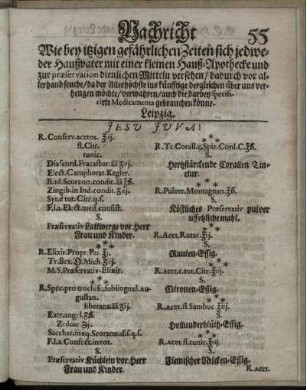 55
Nachricht
Wie bey itzigen gefährlichen Zeiten sich jedwe-
der Haußvater mit einer kleinen Hauß-Apothecke und
zur præservation dienlichen Mitteln versehen / dadurch vor al-
lerhand seuche / da der Allerhöchste ins künfftige dergleichen über uns ver-
hengen möchte / verwahren / auch die darbey specifi-
cirte Medicamenta gebrauchen könne.
Leipzig.
JESU JUVA!
R. Conserv. acetos. ℥ij.
fl. Citr.
tunic.
Diascord. Fracast. aa ʒvj.
Elect. Camphorat. Kegler.
Rad. Scorzon. condit. aa ℥ß.
Zingib. in Ind. condit. ℥j.
Syr. è tot. Citr. q. s.
F. l. a. Elect. med. consist.
S.
Præservativ Lattwerge vor Herr
Frau und Kinder.
R. Elixir. Propr. Par. ℥ij.
M. S. Præservativ-Elixir.
R. Spec. pro trochisc. sublingual. Au-
gustan.
liberant. aa ℥ij.
Extr. angel. ℥ß.
Zedoar. ʒij.
S.
Præservativ Küchlein vor Herr
Frau und Kinder.
R. Tr. Corall. c. Spir. Cord. C. ℥ß.
S.
Hertzstärckende Corallen Tin-
ctur.
R. Pulver. Montagnan. ℥ß.
S.
Köstliches Præservativ pulver
R. Acet. Rutac. ℥iij.
S.
Rauten-Essig.
R. Acet. è tot. Citr. ℥iij.
S.
Citronen-Essig.
R. Acet. fl. Sambuc. ℥iij.
S.
Hollunderblüth-Essig.
R. Acet. fl. tunic. ℥iij.
S.
R. Acet.